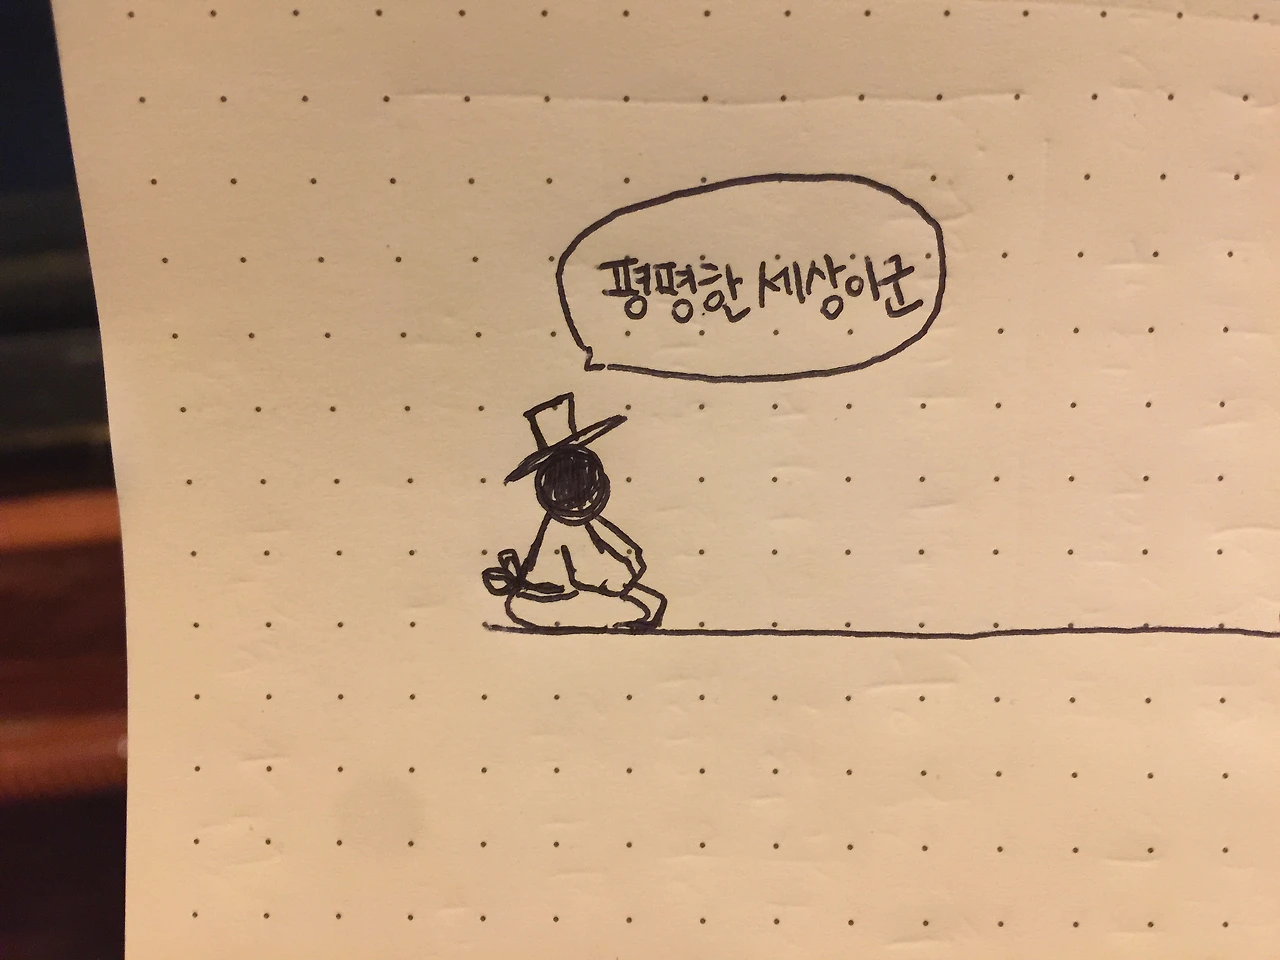 평평한 세상이군